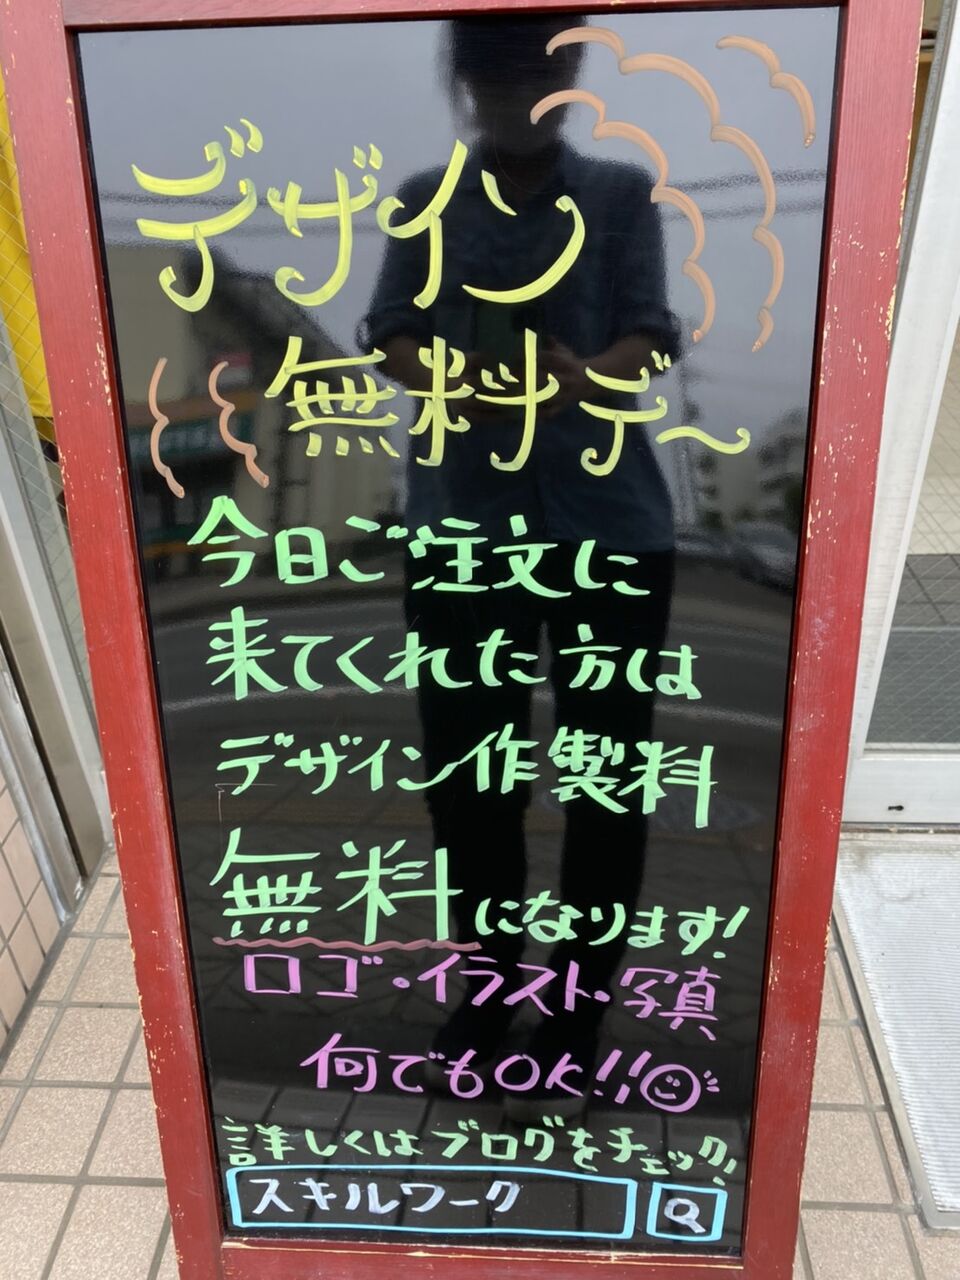 デザイン
無料デ〜
今日ご注文に
来てくれた方は
デザイン作製料
無料になります!
ロゴ・イラスト・写真
何でもOK!!
詳しくはブログをチェック!
スキルワーク